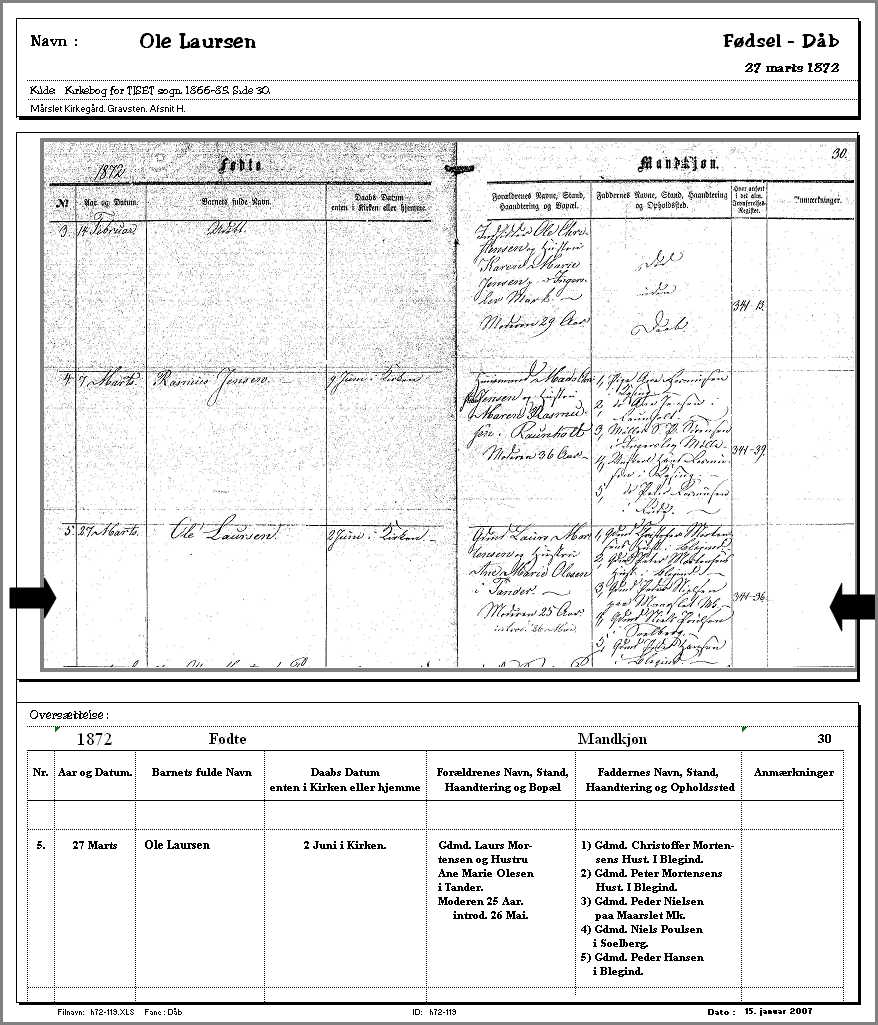 Navn : Ole Laursen Fødsel - Dåb
27 marts 1872
Kilde Kirkebog for TISET sogn. 1866-85. Side 30.
Mårslet Kirkegård. Gravsten. Afsnit H.
1872 Fødte Mandkjøn. 30.
Nr Aar og Datum. Barnets fulde Navn. Daabs Datum enten i Kirken eller hjemme. Forældrenes Navne, Stand, Haandtering og Bopæl. Faddernes Navne, Stand, Haandtering og Opholdssted. Hvor anført i det alm. Jevnførelses-Register. Anmærkninger.
3. 14 Februar Ole Chri-
stensen og Hustru
Karen Marie
Jensen
Død
uden
Daab
341-13.
Moderen 29 Aar
4. 7 Marts. Rasmus Jensen. 9 Juni i Kirken
Huusmand Mads
Jensen og Hustru
Maren Rasmus-
sen i Raunholt
Moderen 36 Aar
341-39.
5. 27 Marts. Ole Laursen. 2 Juni i Kirken
Gdmd Laurs Mor-
tensen og Hustru
Ane Marie Olesen
i Tander.
Moderen 25 Aar.
introd. 26 Mai.
1, Gdmd Christoffer Morten-
sens Hust. i Blegind.
2, Gdmd Peter Mortensens
Hust. i Blegind.
3, Gdmd Peder Nielsen
paa Maarslet Mk.
4, Gdmd Niels Poulsen
i Soelberg.
5, Gdmd Peder Hansen
i Blegind.
341-36.
Oversættelse :
1872 Fødte Mandkjøn 30
Nr. Aar og Datum. Barnets fulde Navn Daabs Datum Forældrenes Navn, Stand, Faddernes Navn, Stand, Anmærkninger
enten i Kirken eller hjemme Haandtering og Bopæl Haandtering og Opholdssted
5. 27 Marts Ole Laursen 2 Juni i Kirken. Gdmd. Laurs Mor- 1) Gdmd. Christoffer Morten-
tensen og Hustru sens Hust. I Blegind.
Ane Marie Olesen 2) Gdmd. Peter Mortensens
i Tander. Hust. I Blegind.
Moderen 25 Aar. 3) Gdmd. Peder Nielsen
introd. 26 Mai. paa Maarslet Mk.
4) Gdmd. Niels Poulsen
i Soelberg.
5) Gdmd. Peder Hansen
i Blegind.
Filnavn: h72-119.XLS Fane : Dåb ID: h72-119 Dato : 15. januar 2007